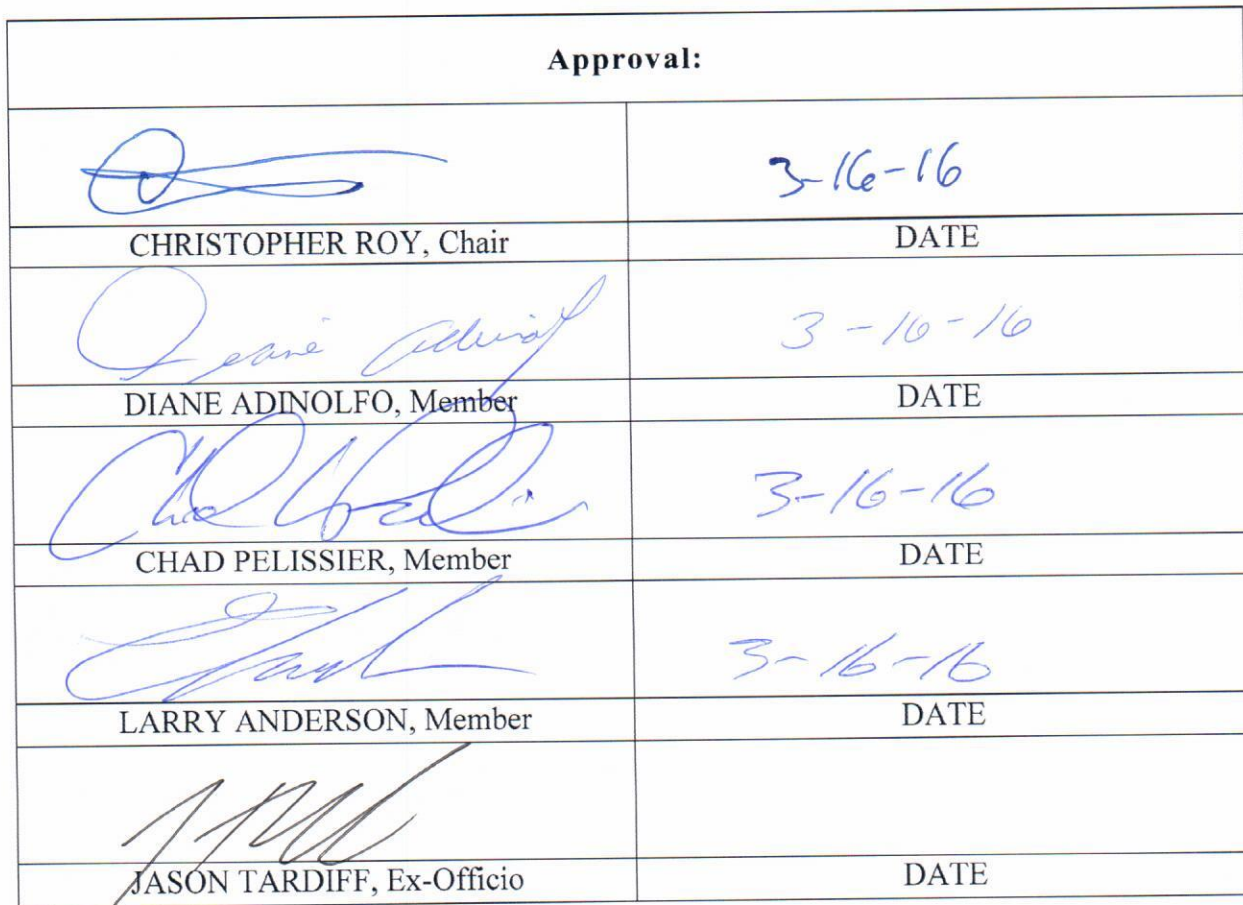 Approval:
3-16-16
CHRISTOPHER ROY, Chair DATE
Diane Adinolf 3-16-16
DIANE ADINOLFO, Member DATE
3-16-16
CHAD PELISSIER, Member DATE
3-16-16
LARRY ANDERSON, Member DATE
JASON TARDIFF, Ex-Officio DATE